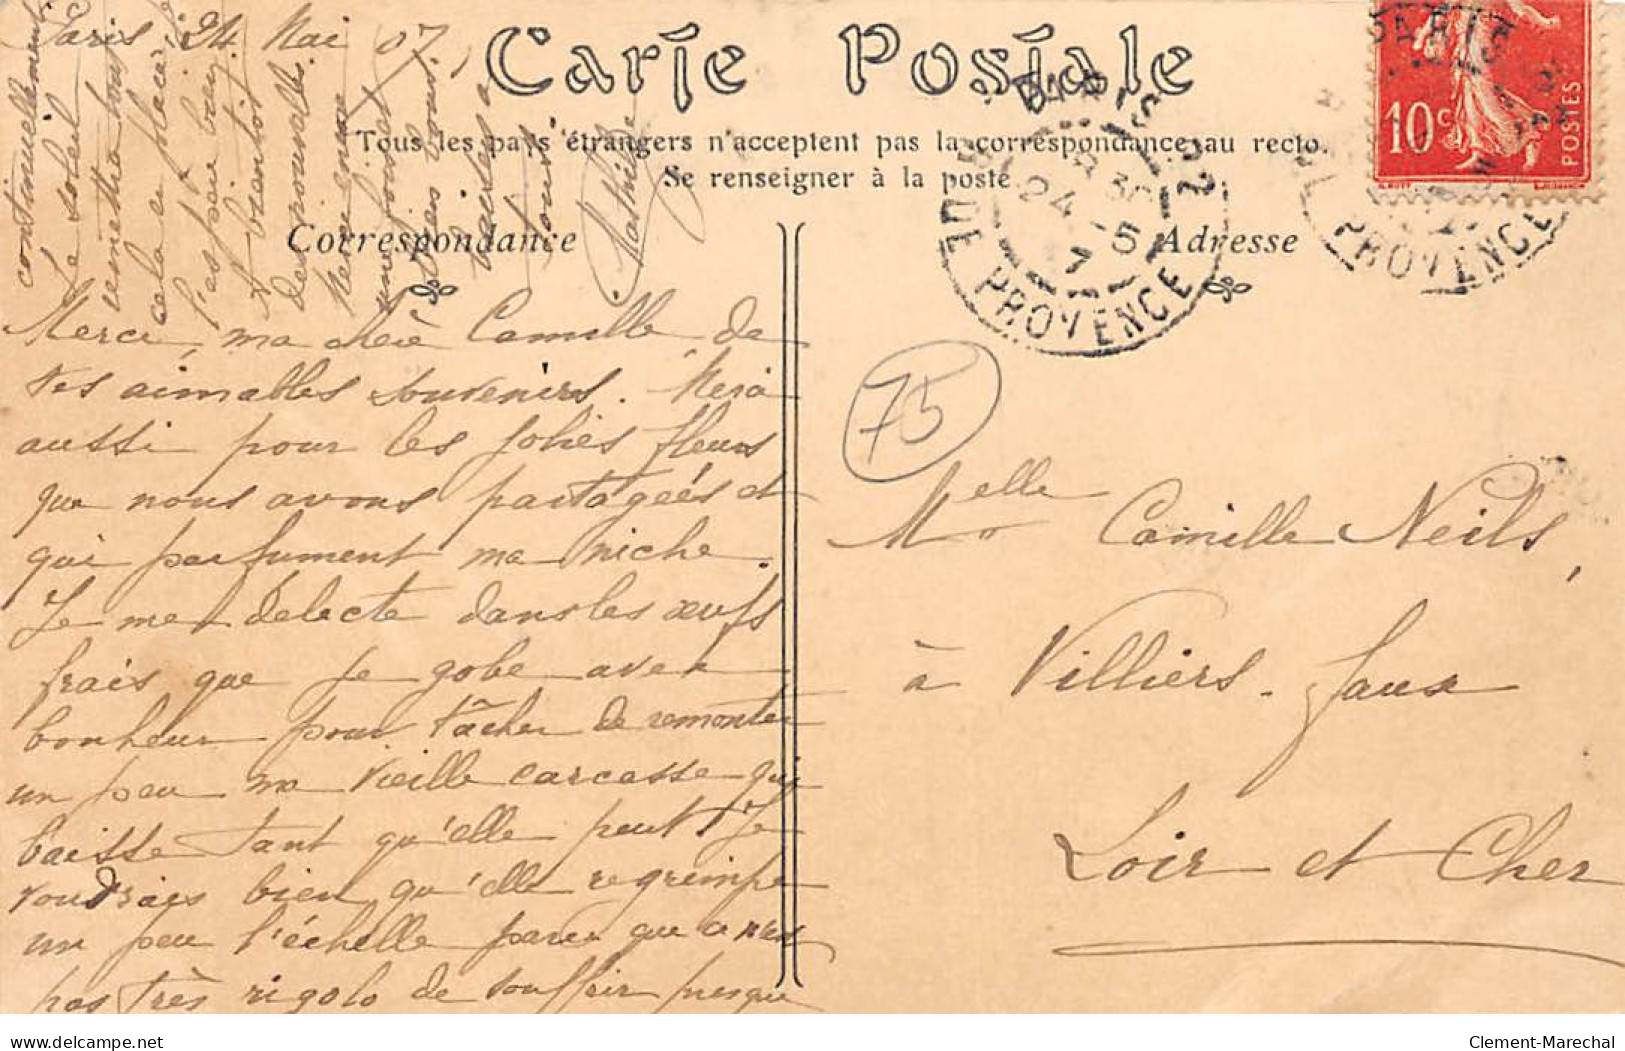 Carte Postale
Tous les pays étrangers n'acceptent pas la correspondance au recto.
Se renseigner à la poste
Correspondance
Adresse
PARIS
RUE DE PROVENCE
24 - 5
7
PARIS
PROVENCE
10c
POSTES
75
Paris 24 Mai 07
Merci, ma chère Camille de
tes aimables souvenirs. Merci
aussi pour les jolies fleurs
que nous avons partagées et
qui parfument ma niche.
Je me délecte dans les œufs
frais que je gobe avec
bonheur pour tâcher de remonter
un peu ma vieille carcasse qui
baisse tant qu'elle peut. Je
voudrais bien qu'elle regrimpe
un peu l'échelle parce que ce n'est
pas très rigolo de souffrir presque
continuellement
Le soleil
remettra tout
cela en place,
l'espère bien
A bientôt
des nouvelles
une bonne
baisers à
tous
Mathilde
Melle Camille Neils,
à Villiers-faux
Loir et Cher
www.delcampe.net
Clement-Marechal